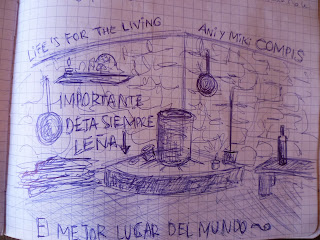 LIFE IS FOR THE LIVING
ANI Y MIKI COMPIS
IMPORTANTE
DEJA SIEMPRE
LEÑA
El MEJOR LUGAR DEL MUNDO